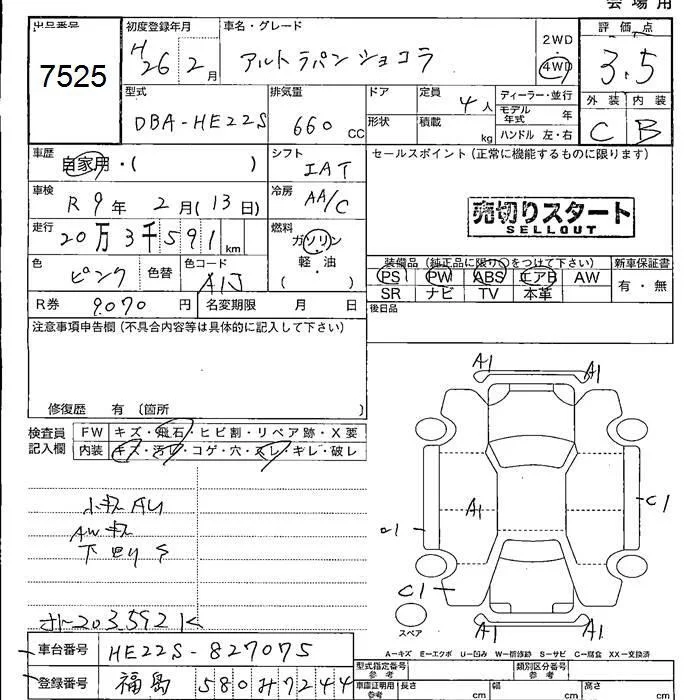 会場用
出品番号 初度登録年月 車名・グレード 2WD 評価点
7525 H26 2月 アルトラパンショコラ 4WD 3.5
型式 排気量 ドア 定員 4人 ディーラー・並行 外装 内装
DBA-HE22S 660 CC 形状 積載 kg モデル年式 年 ハンドル 左・右 C B
車歴 自家用・( ) シフト IAT セールスポイント(正常に機能するものに限ります)
車検 R9年 2月(13日) 冷房 AA/C 売切りスタート
SELLOUT
走行 20万3千591km 燃料 ガソリン
軽・油
( )
装備品(純正品に限り○をつけて下さい) 新車保証書
色 ピンク 色替 色コード A1J PS PW ABS エアB AW 有・無
SR ナビ TV 本革
R券 9070円 名変期限 月 日 後日品
注意事項申告欄(不具合内容等は具体的に記入して下さい)
修復歴 有(箇所 )
検査員記入欄 FW キズ・飛石・ヒビ割・リペア跡・X要
内装 キズ・汚レ・コゲ・穴・スレ・キレ・破レ
A1 A1
A1 C1
C1
A1 A1
スペア
下回りS
203592K
A-キズ E-エクボ U-凹み W-補修跡 S-サビ C-腐食 XX-交換済
車台番号 HE22S-827075
型式指定番号 参考 類別区分番号 参考
登録番号 福島 580 み 7244
車庫証明用 参考 長さ cm 幅 cm 高さ cm